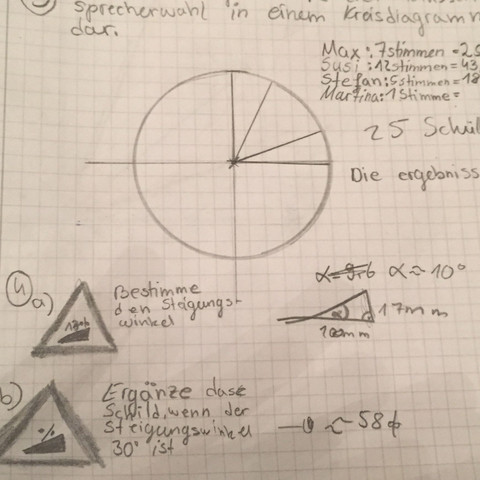 sprecherwahl in einem Kreisdiagramm
dar.
Max: 7stimmen = 28
Susi: 12stimmen = 43
Stefan: 5stimmen = 18
Martina: 1Stimme =
25 Schül
Die ergebniss
4
a)
Bestimme
den Steigungs-
winkel
α = 9,6 α ≈ 10°
α
17mm
100mm
b)
%
Ergänze dass
Schild, wenn der
Steigungswinkel
30° ist
≈ 58%